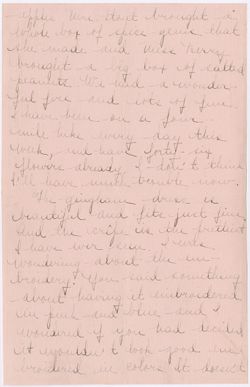 apples. Mrs. Hart brought a
whole box of spice gems that
she made and Miss Kerry
brought a big box of salted
peanuts. We had a wonder-
ful fire and lots of fun.
I have been on a four
mile hike every day this
week, and have forty-six
flowers already. I don't think
I'll have much trouble now.
The gingham dress is
beautiful and fits just fine
and the crêpe is the prettiest
I have ever seen. I was
wondering about the em-
broidery. You said something
about having it embroidered
in pink and blue and I
wondered if you had decided
it wouldn't look good em-
broidered in colors. It doesn't